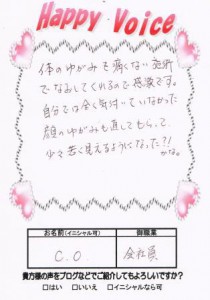 Happy Voice
体のゆがみを痛くない施術
でなおしてくれるので感激です。
自分では全く気付いていなかった
顔のゆがみも直してもらって、
少々若く見えるようになった?!
かな。
お名前(イニシャル可)
御職業
C.O.
会社員
貴方様の声をブログなどでご紹介してもよろしいですか?
□はい □いいえ □イニシャルなら可